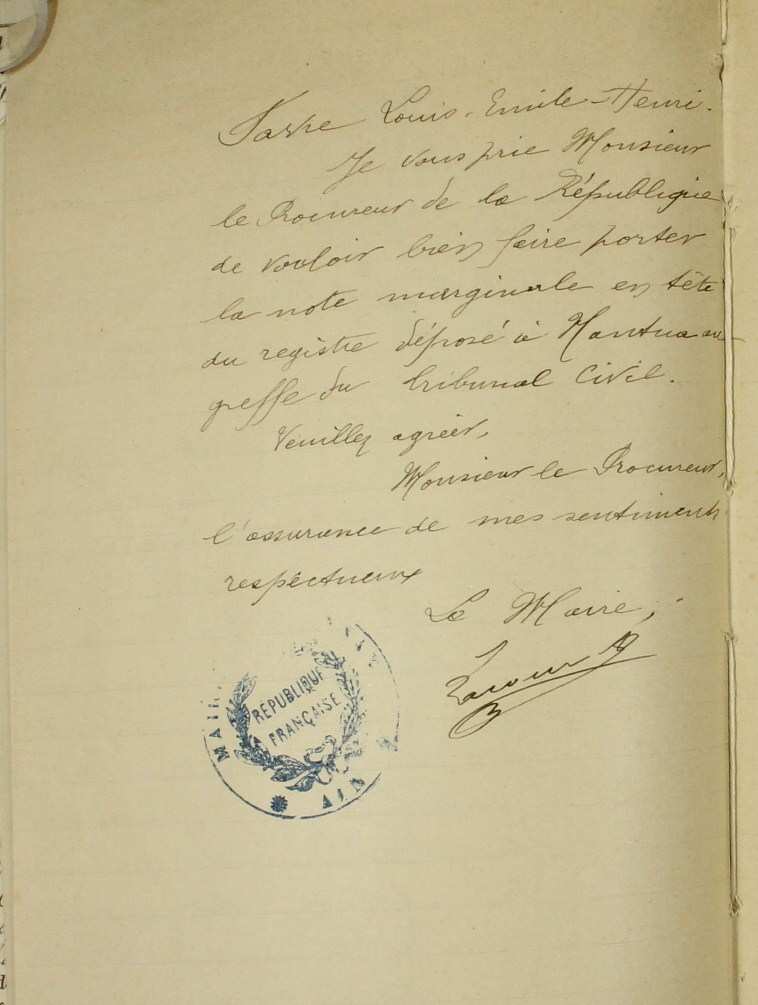 Louis-Emile-Henri.
Je vous prie Monsieur
le Procureur de la République
de vouloir bien faire porter
la note marginale en tête
du registre déposé à Nantua au
greffe du tribunal Civil.
Veuillez agréer,
Monsieur le Procureur,
l'assurance de mes sentiments
respectueux
Le Maire,
RÉPUBLIQUE
FRANÇAISE
AIN